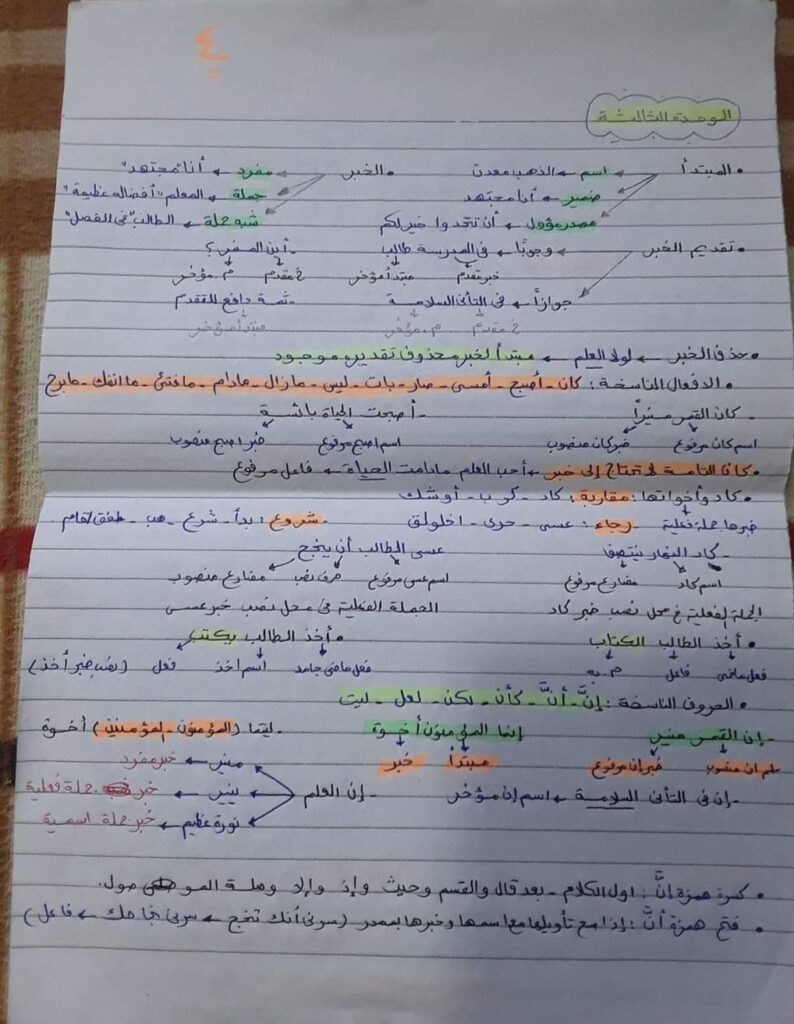 ٤
الوحدة الثالثة
• المبتدأ ← اسم ← الذهب معدن • الخبر ← مفرد ← أنا "مجتهد"
ضمير ← أنا مجتهد جملة ← المعلم "أفضاله عظيمة"
مصدر مؤول ← أن تتحدوا خير لكم شبه جملة ← الطالب "في الفصل"
• تقديم الخبر ← وجوبًا ← في المدرسة طالب - أين المفر؟
خبر مقدم مبتدأ مؤخر خ مقدم م. مؤخر
جوازاً ← في التأني السلامة - ثمة دافع للتقدم
خ مقدم م. مؤخر مبتدأ مؤخر
• حذف الخبر ← لولا العلم ← مبتدأ لخبر محذوف تقديره موجود
• الافعال الناسخة: كان - أصبح - أمسى - صار - بات - ليس - مازال - مادام - مافتئ - ما انفك - مابرح
- كان القمر منيراً - أصبحت الحياة بائسة
اسم كان مرفوع خبر كان منصوب اسم اصبح مرفوع خبر اصبح منصوب
• كان التامة لا تحتاج إلى خبر ← أحب العلم مادامت الحياة ← فاعل مرفوع
• كاد وأخواتها: مقاربة: كاد - كرب - أوشك
خبرها جملة فعلية - رجاء: عسى - حرى - اخلولق - شروع: بدأ - شرع - هب - طفق
- كاد النهار ينتصف عسى الطالب أن ينجح
اسم كاد مضارع مرفوع اسم عسى مرفوع حرف نصب مضارع منصوب
الجملة الفعلية في محل نصب خبر كاد الجملة الفعلية في محل نصب خبر عسى
• أخذ الطالب الكتاب • أخذ الطالب يكتب
فعل ماضي فاعل م. به فعل ماضي جامد اسم اخذ فعل (نصب خبر أخذ)
• الحروف الناسخة: إنَّ - أنَّ - كأن - لكن - لعل - ليت
- إن القمر منير إنما المؤمنون أخوة - ليتما (المؤمنون - المؤمنين) أخوة
خبر إن مرفوع مبتدأ خبر
- إن في التأني السلامة ← اسم إن مؤخر - إن العلم منير ← خبر مفرد
ينير ← خبر جملة فعلية
نوره عظيم ← خبر جملة اسمية
• كسرة همزة إنَّ: اول الكلام - بعد قال والقسم وحيث وإذ وإلا وصلة الموصول.
• فتح همزة أنَّ: إذا صح تأويلها مع اسمها وخبرها بمصدر (سرني أنك تنجح ← سرني نجاحك ← فاعل)